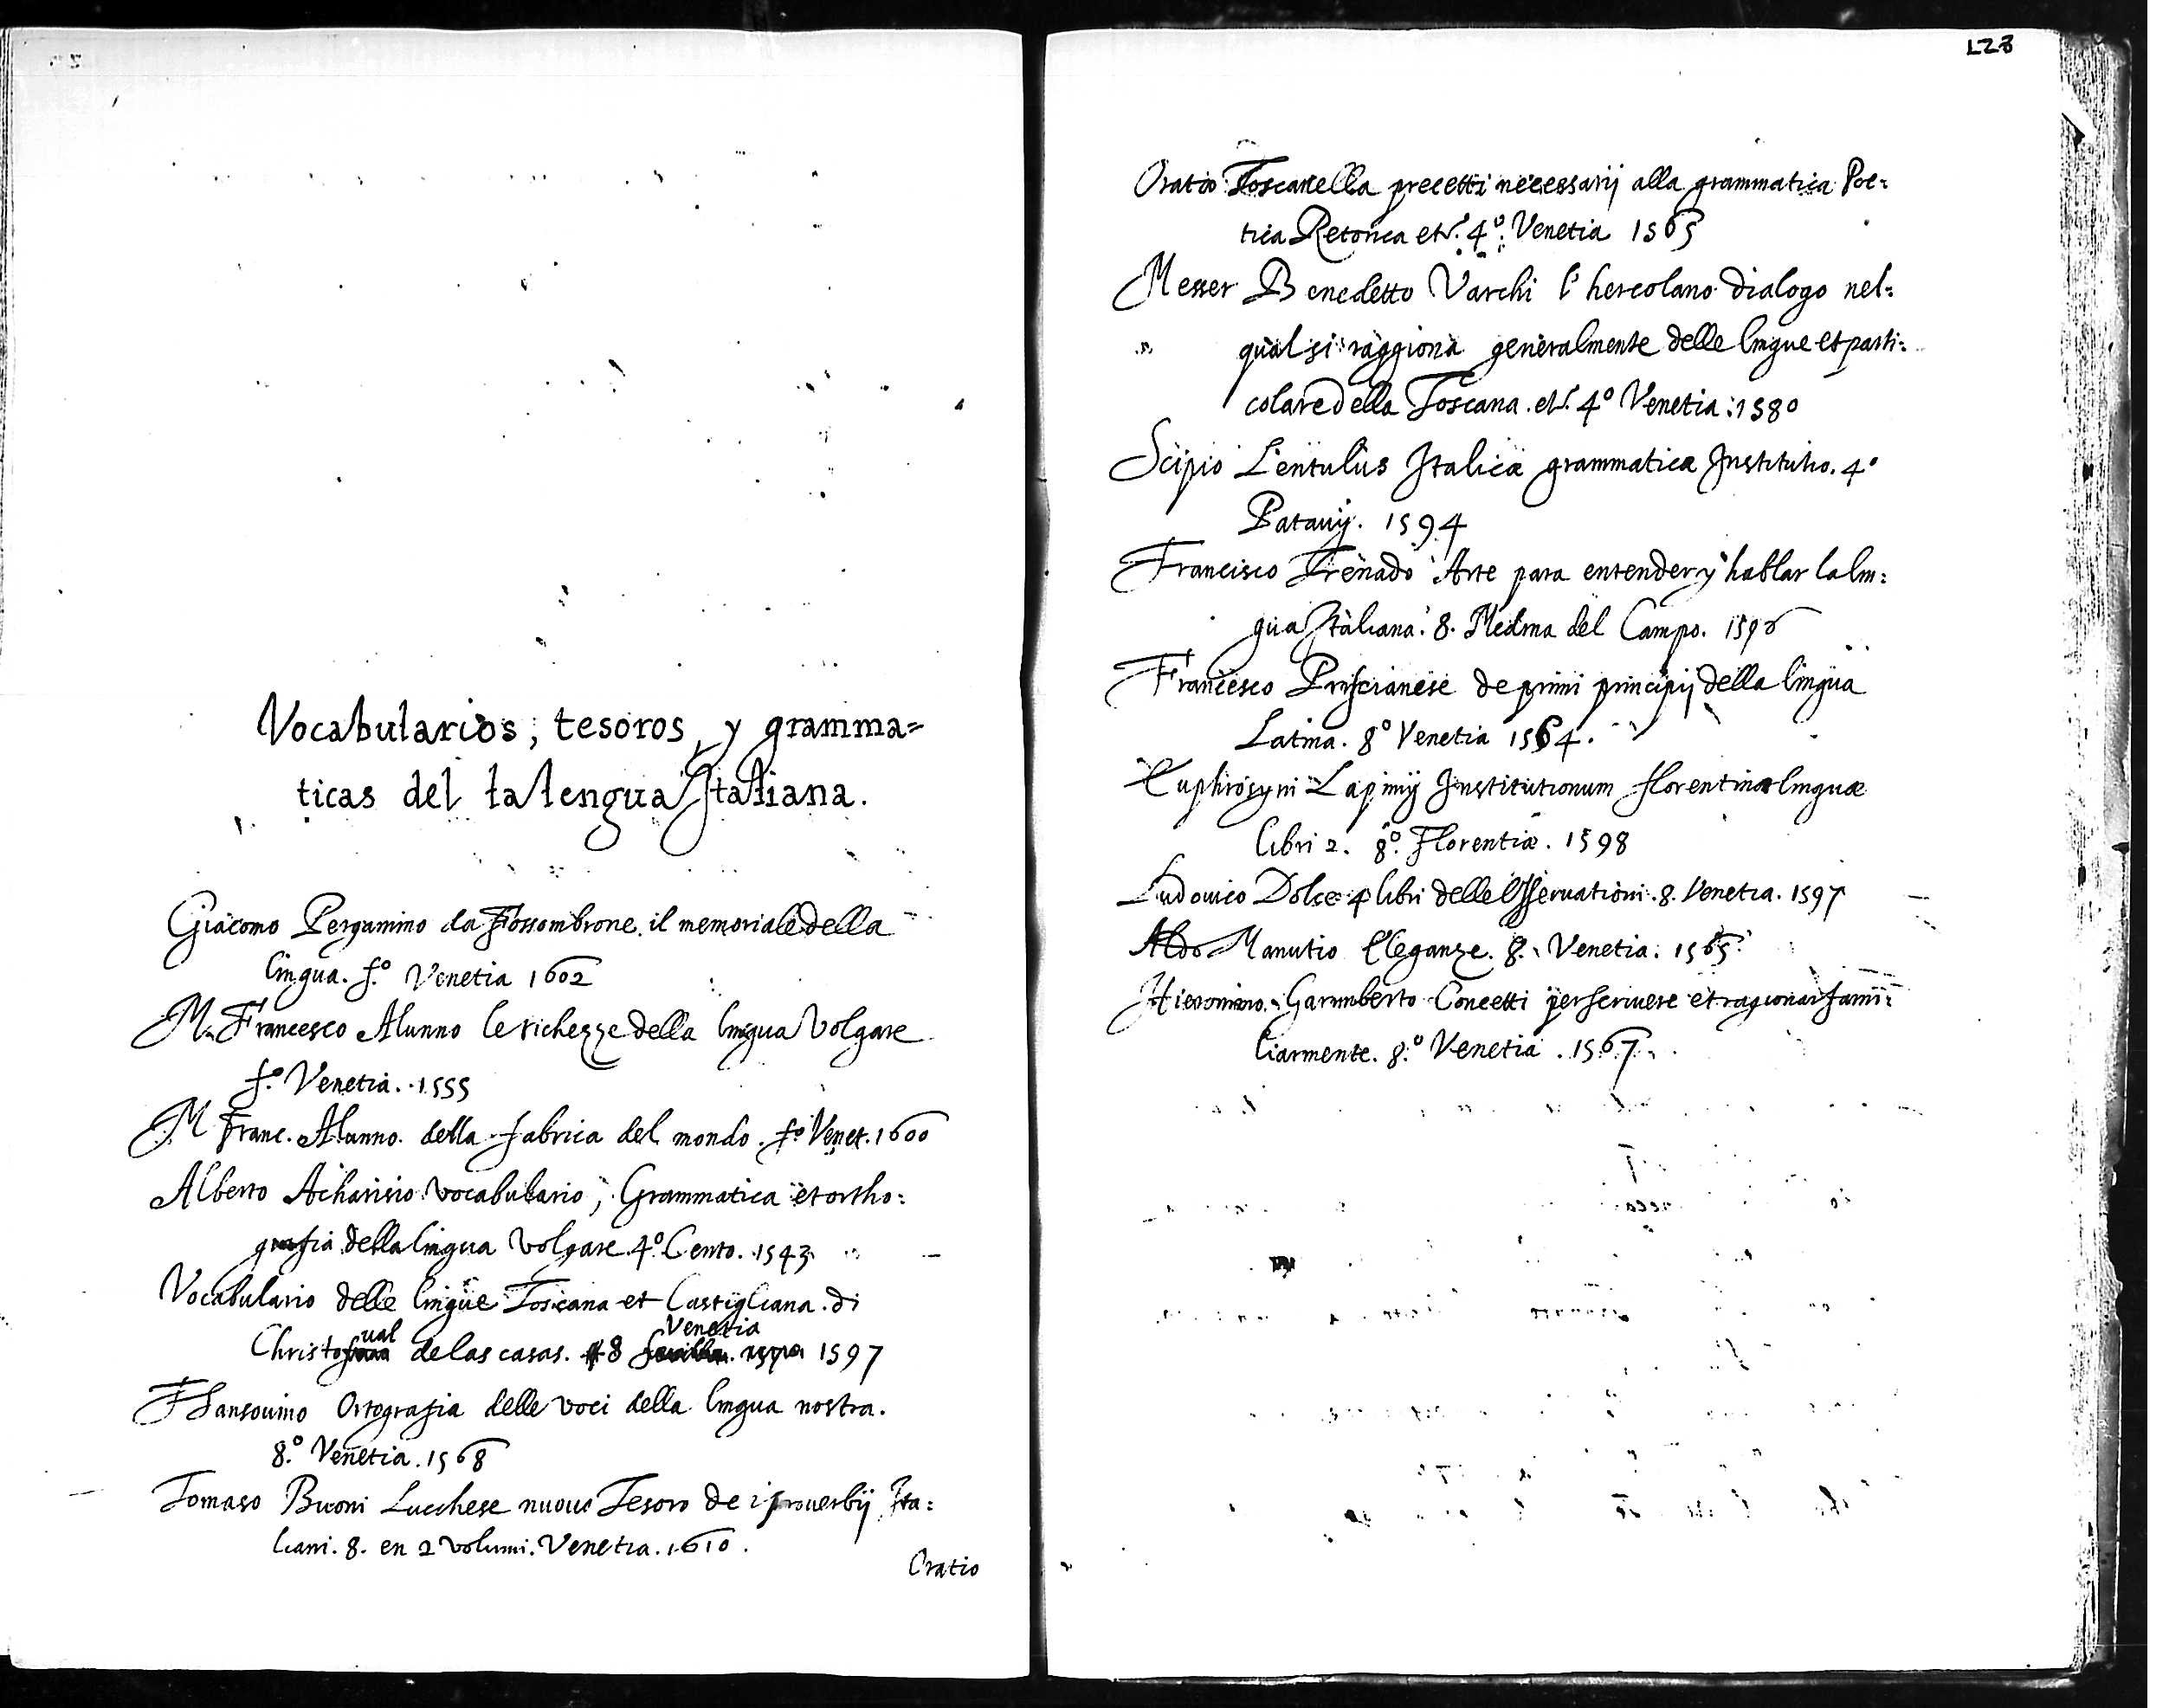 Vocabularios, tesoros, y gramma=
ticas del la lengua Italiana.
Giacomo Pergamino da Fossombrone. il memoriale della
lingua. f.º Venetia 1602
M. Francesco Alunno le richezze della lingua volgare
f.º Venetia. 1555
M Franc. Alunno. della fabrica del mondo. f.º Venet. 1600
Alberto Acharisio vocabulario, Grammatica et ortho=
grafia della lingua volgare 4.º Cento. 1543.
Vocabulario delle lingue Toscana et Castigliana. di
Christoual de las casas. 8 Venetia 1597
F Sansouino Ortografia delle voci della lingua nostra.
8.º Venetia. 1568
Tomaso Buoni Lucchese nuouo Tesoro de i prouerbij Ita=
liani. 8. en 2 volumi. Venetia. 1610.
Oratio
Oratio Toscanella precetti necessarij alla grammatica Poe=
tica Retorica et. 4.º Venetia 1565
Messer Benedetto Varchi l' hercolano dialogo nel=
qual si raggiona generalmente delle lingue et parti=
colare della Toscana. et. 4º Venetia. 1580
Scipio Lentulus Italicæ grammaticæ Institutio. 4º
Patauij. 1594
Francisco Trenado Arte para entender y hablar la lin=
gua Italiana. 8. Medina del Campo. 1596
Francesco Priscianese de primi principij della lingua
Latina. 8º Venetia 1564.
Euphrosyni Lapinij Institutionum florentinæ linguæ
libri 2. 8.º Florentiæ. 1598
Ludouico Dolce 4 libri delle Osseruationi. 8. Venetia. 1597
Aldo Manutio Eleganze. 8. Venetia. 1565.
Hieronimo. Garimberto Concetti per scriuere et ragionar fami=
liarmente. 8.º Venetia. 1567.